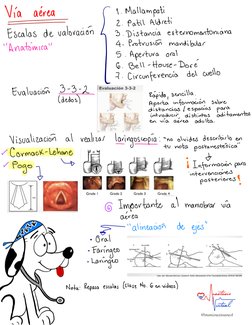 Vía aérea
Escalas de valoración
"Anatómica"
1. Mallampati
2. Patil Aldreti
3. Distancia esternomentoniana
4. Protrusión mandibular
5. Apertura oral
6. Bell-House-Doré
7. Circunferencia del cuello
Evaluación 3-3-2
(dedos)
Evaluación 3-3-2
Rápida, sencilla.
Aporta información sobre
distancias / espacios para
introducir distintos aditamentos
en vía aérea adulta.
Visualización al realizar laringoscopia
"no olvides describirlo en
tu nota postanestésica"
- Cormack-Lehane
- Pogo
Grade 1
Grade 2
Grade 3
Grade 4
! Información para
intervenciones
posteriores !
Importante al maniobrar vía
aérea
"alineación de ejes"
- Oral
- Faríngeo
- Laríngeo
Nota: Repasa escalas (Clase No. 6 en videos)
Virtual